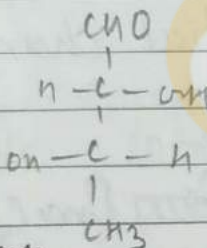 CHO
H - C - OH
OH - C - H
CH3